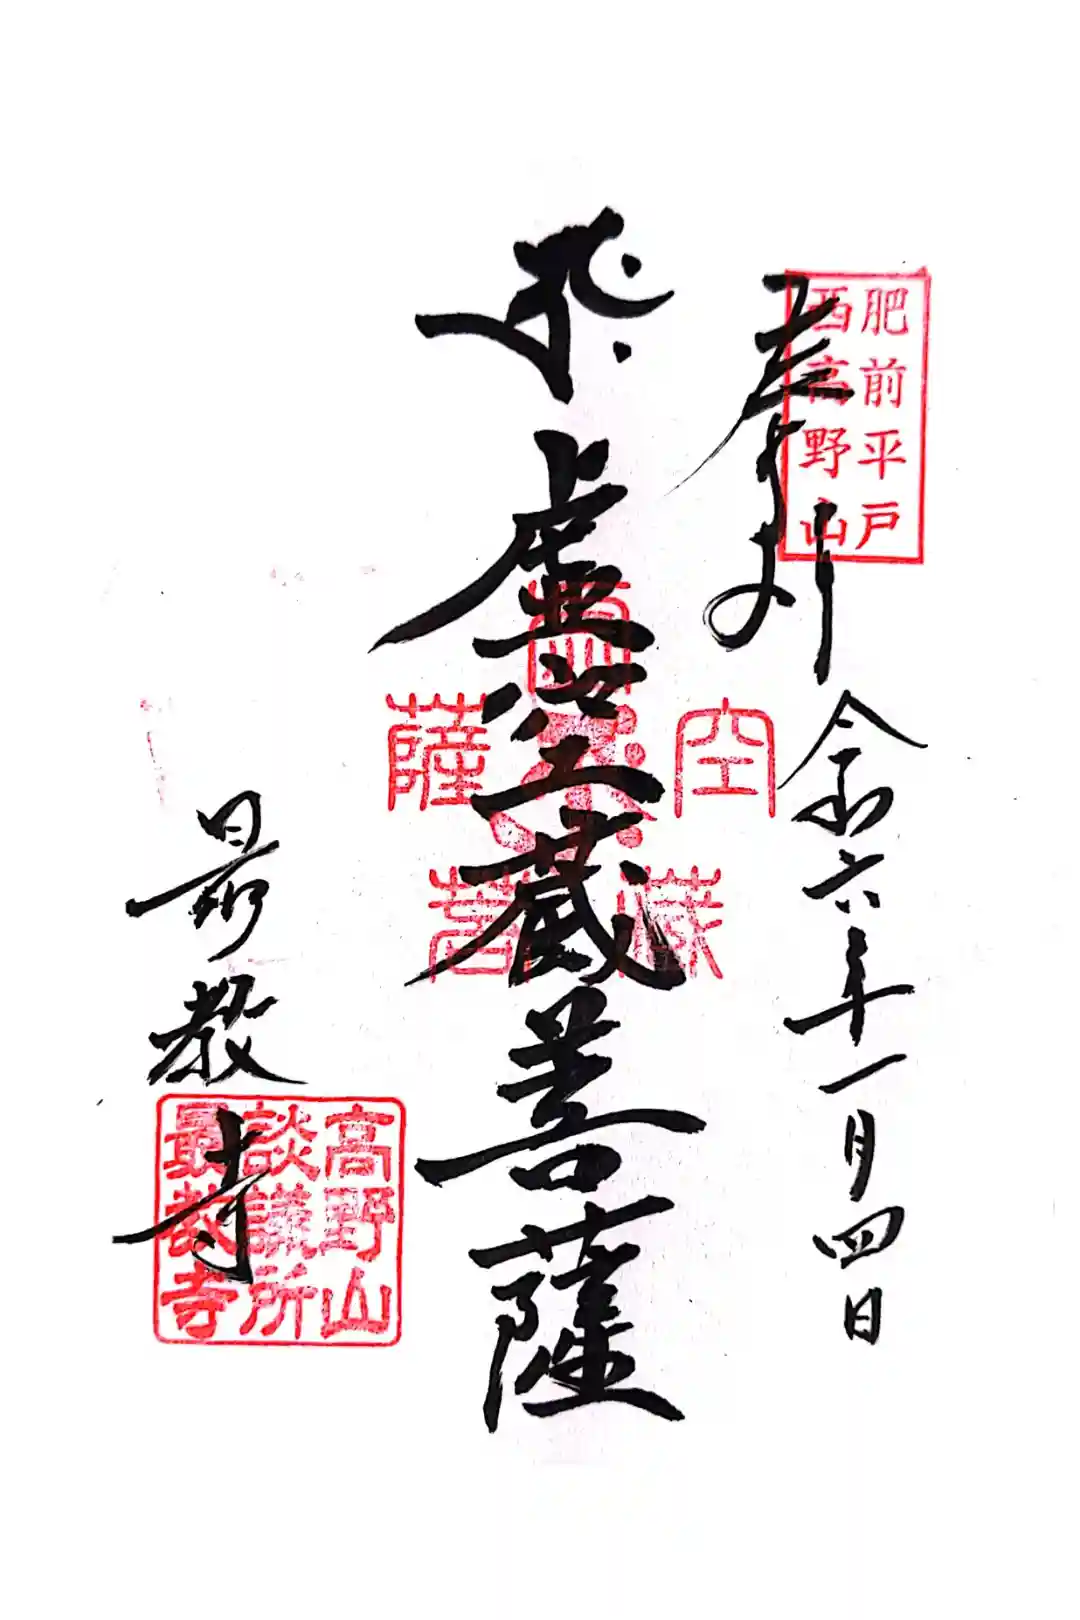 奉拝
令和六年一月四日
肥前平戸
西高野山
虚空蔵菩薩
虚
空
蔵
菩
薩
最教寺
高野山
談議所
最教寺